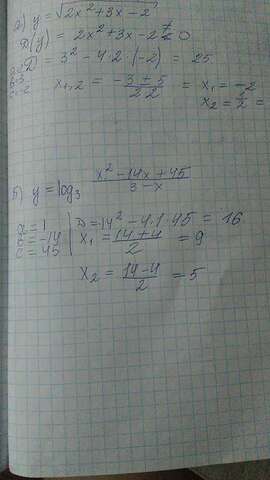 а) y = √2x² + 3x - 2
D(y) = 2x² + 3x - 2 ≠ 0
D = 3² - 4·2·(-2) = 25
b=3
c=-2
x₁,₂ = (-3 ± 5)/(2·2) = x₁ = -2
x₂ = 1/2 =
Б) y = log₃ (x² - 14x + 45)/(3 - x)
a = 1
b = -14
c = 45
D = 14² - 4·1·45 = 16
x₁ = (14 + 4)/2 = 9
x₂ = (14 - 4)/2 = 5